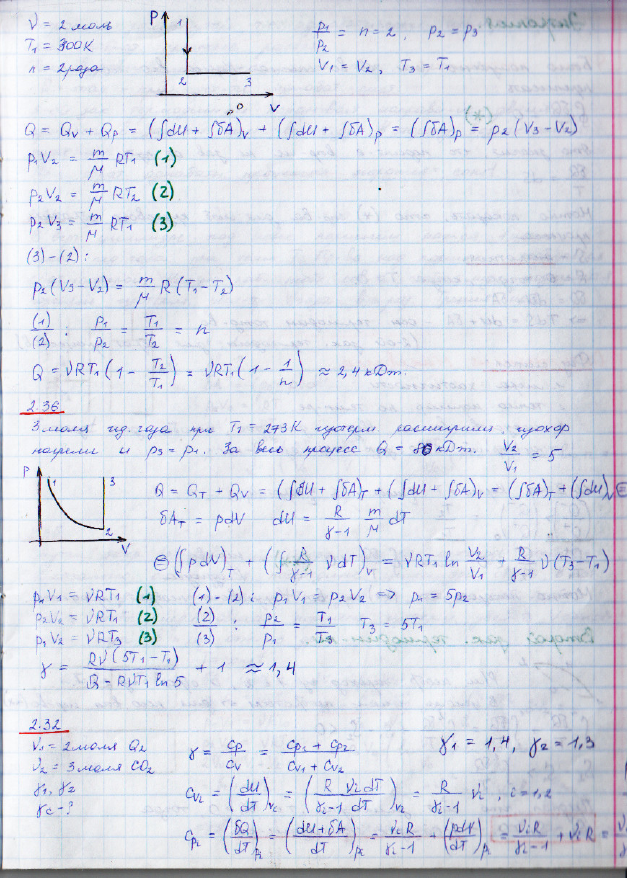 ν = 2 моль
T₁ = 300К
n = 2 раза
P 1 2 3 V
p₁/p₂ = n = 2, p₂ = p₃
V₁ = V₂, T₃ = T₁
Q = Qv + Qp = (∫dU + ∫δA)v + (∫dU + ∫δA)p = (∫δA)p = p₂(V₃ - V₂)
p₁V₂ = m/μ RT₁ (1)
p₂V₂ = m/μ RT₂ (2)
p₂V₃ = m/μ RT₁ (3)
(3)-(2):
p₂(V₃-V₂) = m/μ R(T₁-T₂)
(1)/(2) : p₁/p₂ = T₁/T₂ = n
Q = νRT₁(1 - T₂/T₁) = νRT₁(1 - 1/n) ≈ 2,4 кДж.
2.36
3 моля ид. газа при T₁ = 273К изотерм расширили, изохор
нагрели и p₃ = p₁. За весь процесс Q = 80 кДж. V₂/V₁ = 5
P 1 3 2 V
Q = QT + Qv = (∫dU + ∫δA)T + (∫dU + ∫δA)v = (∫δA)T + (∫dU)v ⊜
δAT = pdV dU = R/(γ-1) m/μ dT
⊜ (∫pdV)T + (∫ R/(γ-1) νdT)v = νRT₁ ln V₂/V₁ + R/(γ-1) ν(T₃-T₁)
p₁V₁ = νRT₁ (1) (1)-(2): p₁V₁ = p₂V₂ => p₁ = 5p₂
p₂V₂ = νRT₁ (2) (2)/(3) : p₂/p₁ = T₁/T₃ T₃ = 5T₁
p₁V₂ = νRT₃ (3)
γ = Rν(5T₁-T₁)/(Q - RνT₁ ln5) + 1 ≈ 1,4
2.32
ν₁ = 2 моля O₂
ν₂ = 3 моля CO₂
γ₁, γ₂
γc - ?
γ = cp/cv = (cp₁ + cp₂)/(cv₁ + cv₂) γ₁ = 1,4, γ₂ = 1,3
cvi = (dU/dT)vi = (R/(γi-1) νidT/dT)vi = R/(γi-1) νi, i=1,2
cpi = (δQ/dT)pi = ((dU+δA)/dT)pi = νiR/(γi-1) + (pdV/dT)pi = νiR/(γi-1) + νiR =